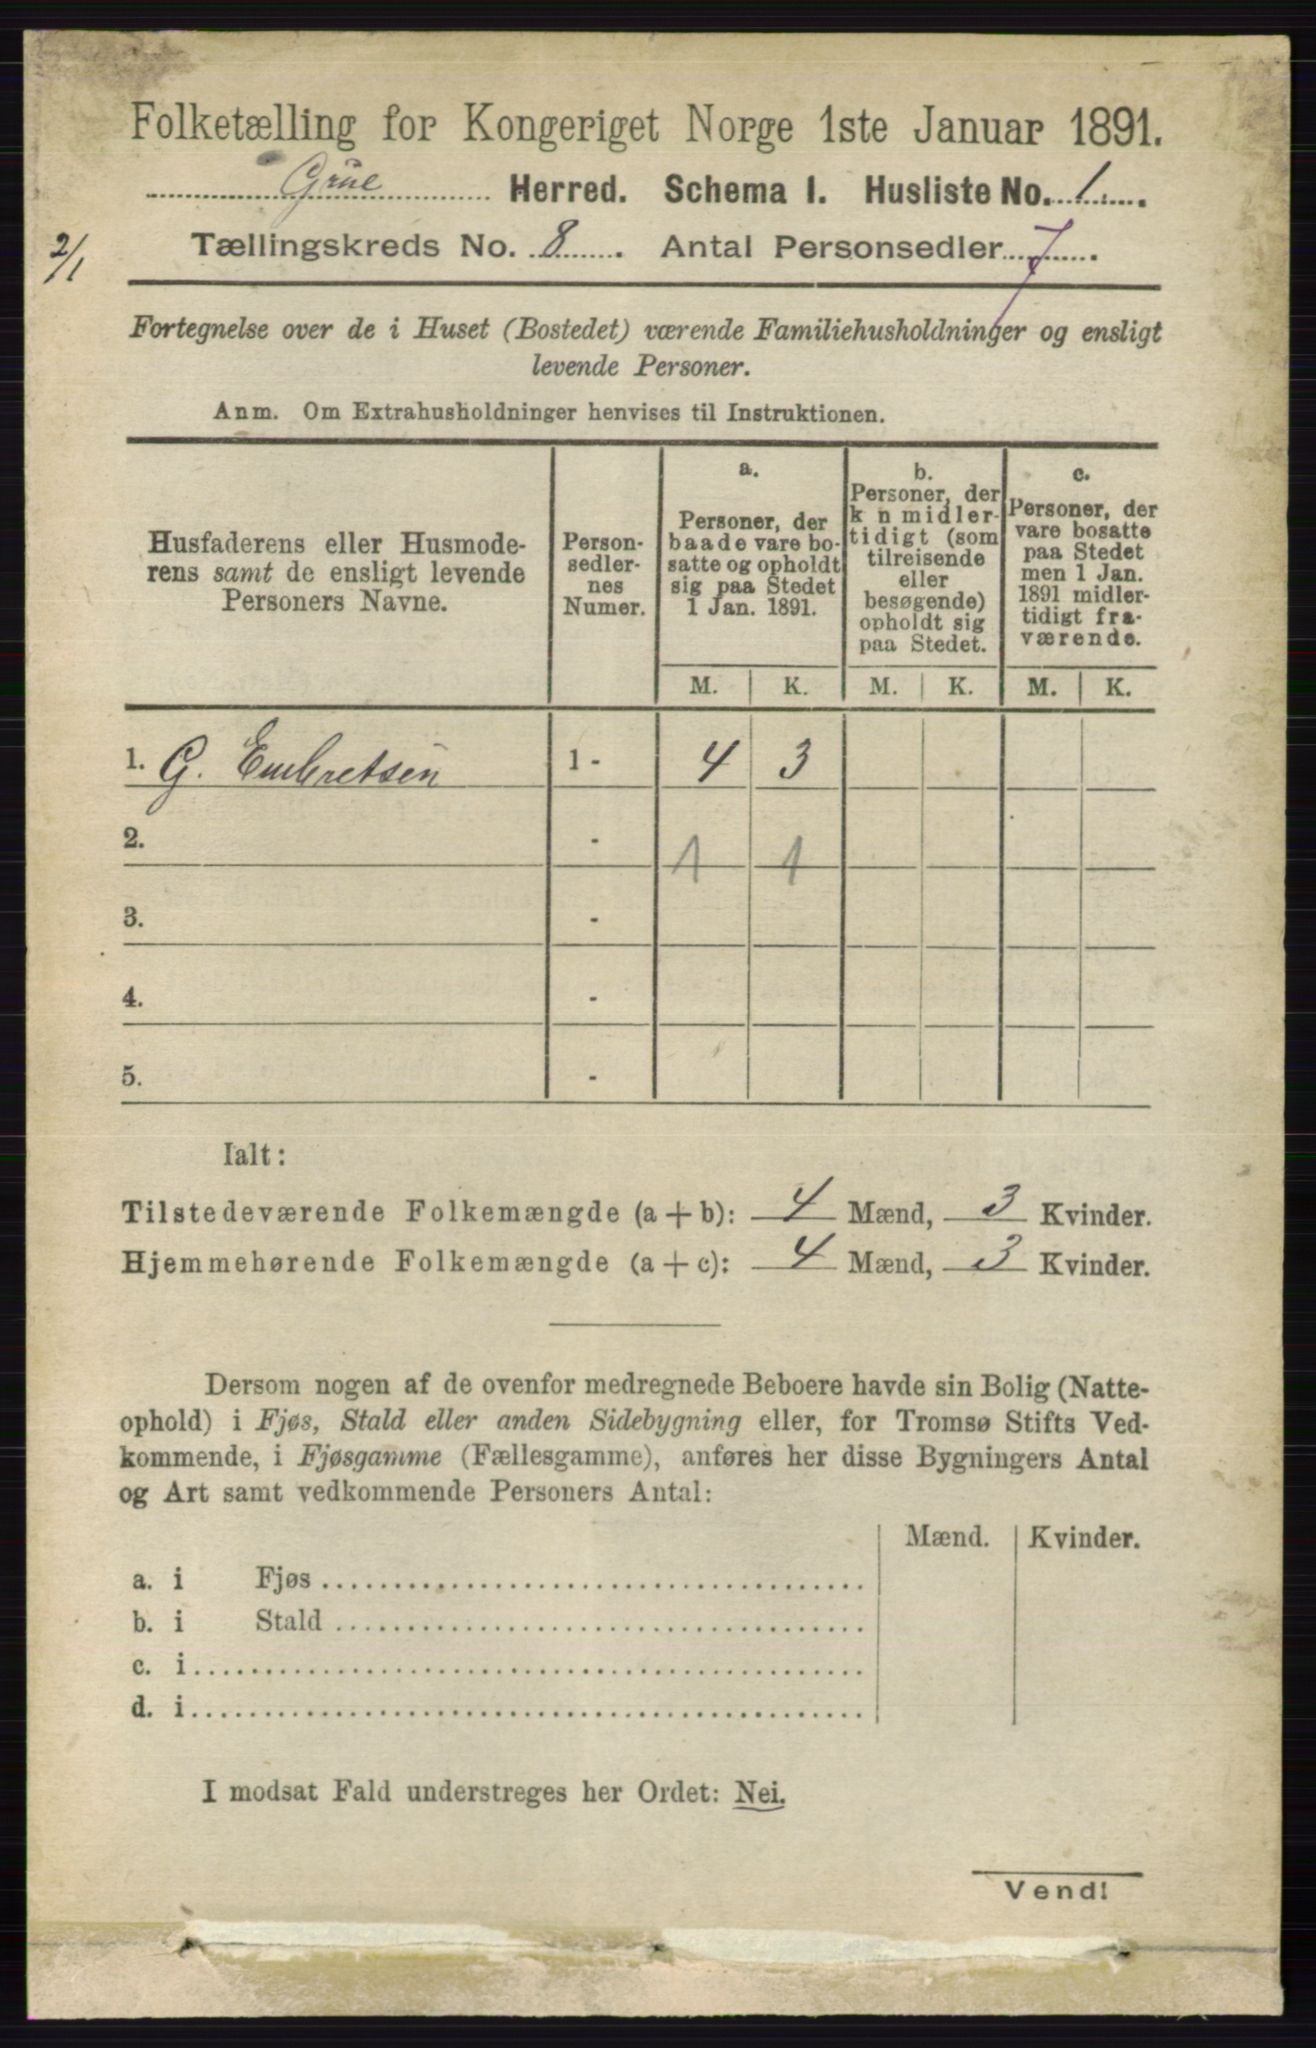 Folketælling for Kongeriget Norge 1ste Januar 1891.
Grue Herred. Schema I. Husliste No. 1
2/1
Tællingskreds No. 8. Antal Personsedler 7
Fortegnelse over de i Huset (Bostedet) værende Familiehusholdninger og ensligt
levende Personer.
Anm. Om Extrahusholdninger henvises til Instruktionen.
Husfaderens eller Husmode-
rens samt de ensligt levende
Personers Navne.
Person-
sedler-
nes
Numer.
a.
Personer, der
baade vare bo-
satte og opholdt
sig paa Stedet
1 Jan. 1891.
b.
Personer, der
k n midler-
tidigt (som
tilreisende
eller
besøgende)
opholdt sig
paa Stedet.
c.
Personer, der
vare bosatte
paa Stedet
men 1 Jan.
1891 midler-
tidigt fra-
værende.
M. K. M. K. M. K.
1. G. Embretsen 1 - 4 3
2. - 1 1
3. -
4. -
5. -
Ialt:
Tilstedeværende Folkemængde (a + b): 4 Mænd, 3 Kvinder.
Hjemmehørende Folkemængde (a + c): 4 Mænd, 3 Kvinder.
Dersom nogen af de ovenfor medregnede Beboere havde sin Bolig (Natte-
ophold) i Fjøs, Stald eller anden Sidebygning eller, for Tromsø Stifts Ved-
kommende, i Fjøsgamme (Fællesgamme), anføres her disse Bygningers Antal
og Art samt vedkommende Personers Antal:
Mænd. Kvinder.
a. i Fjøs
b. i Stald
c. i
d. i
I modsat Fald understreges her Ordet: Nei.
Vend!